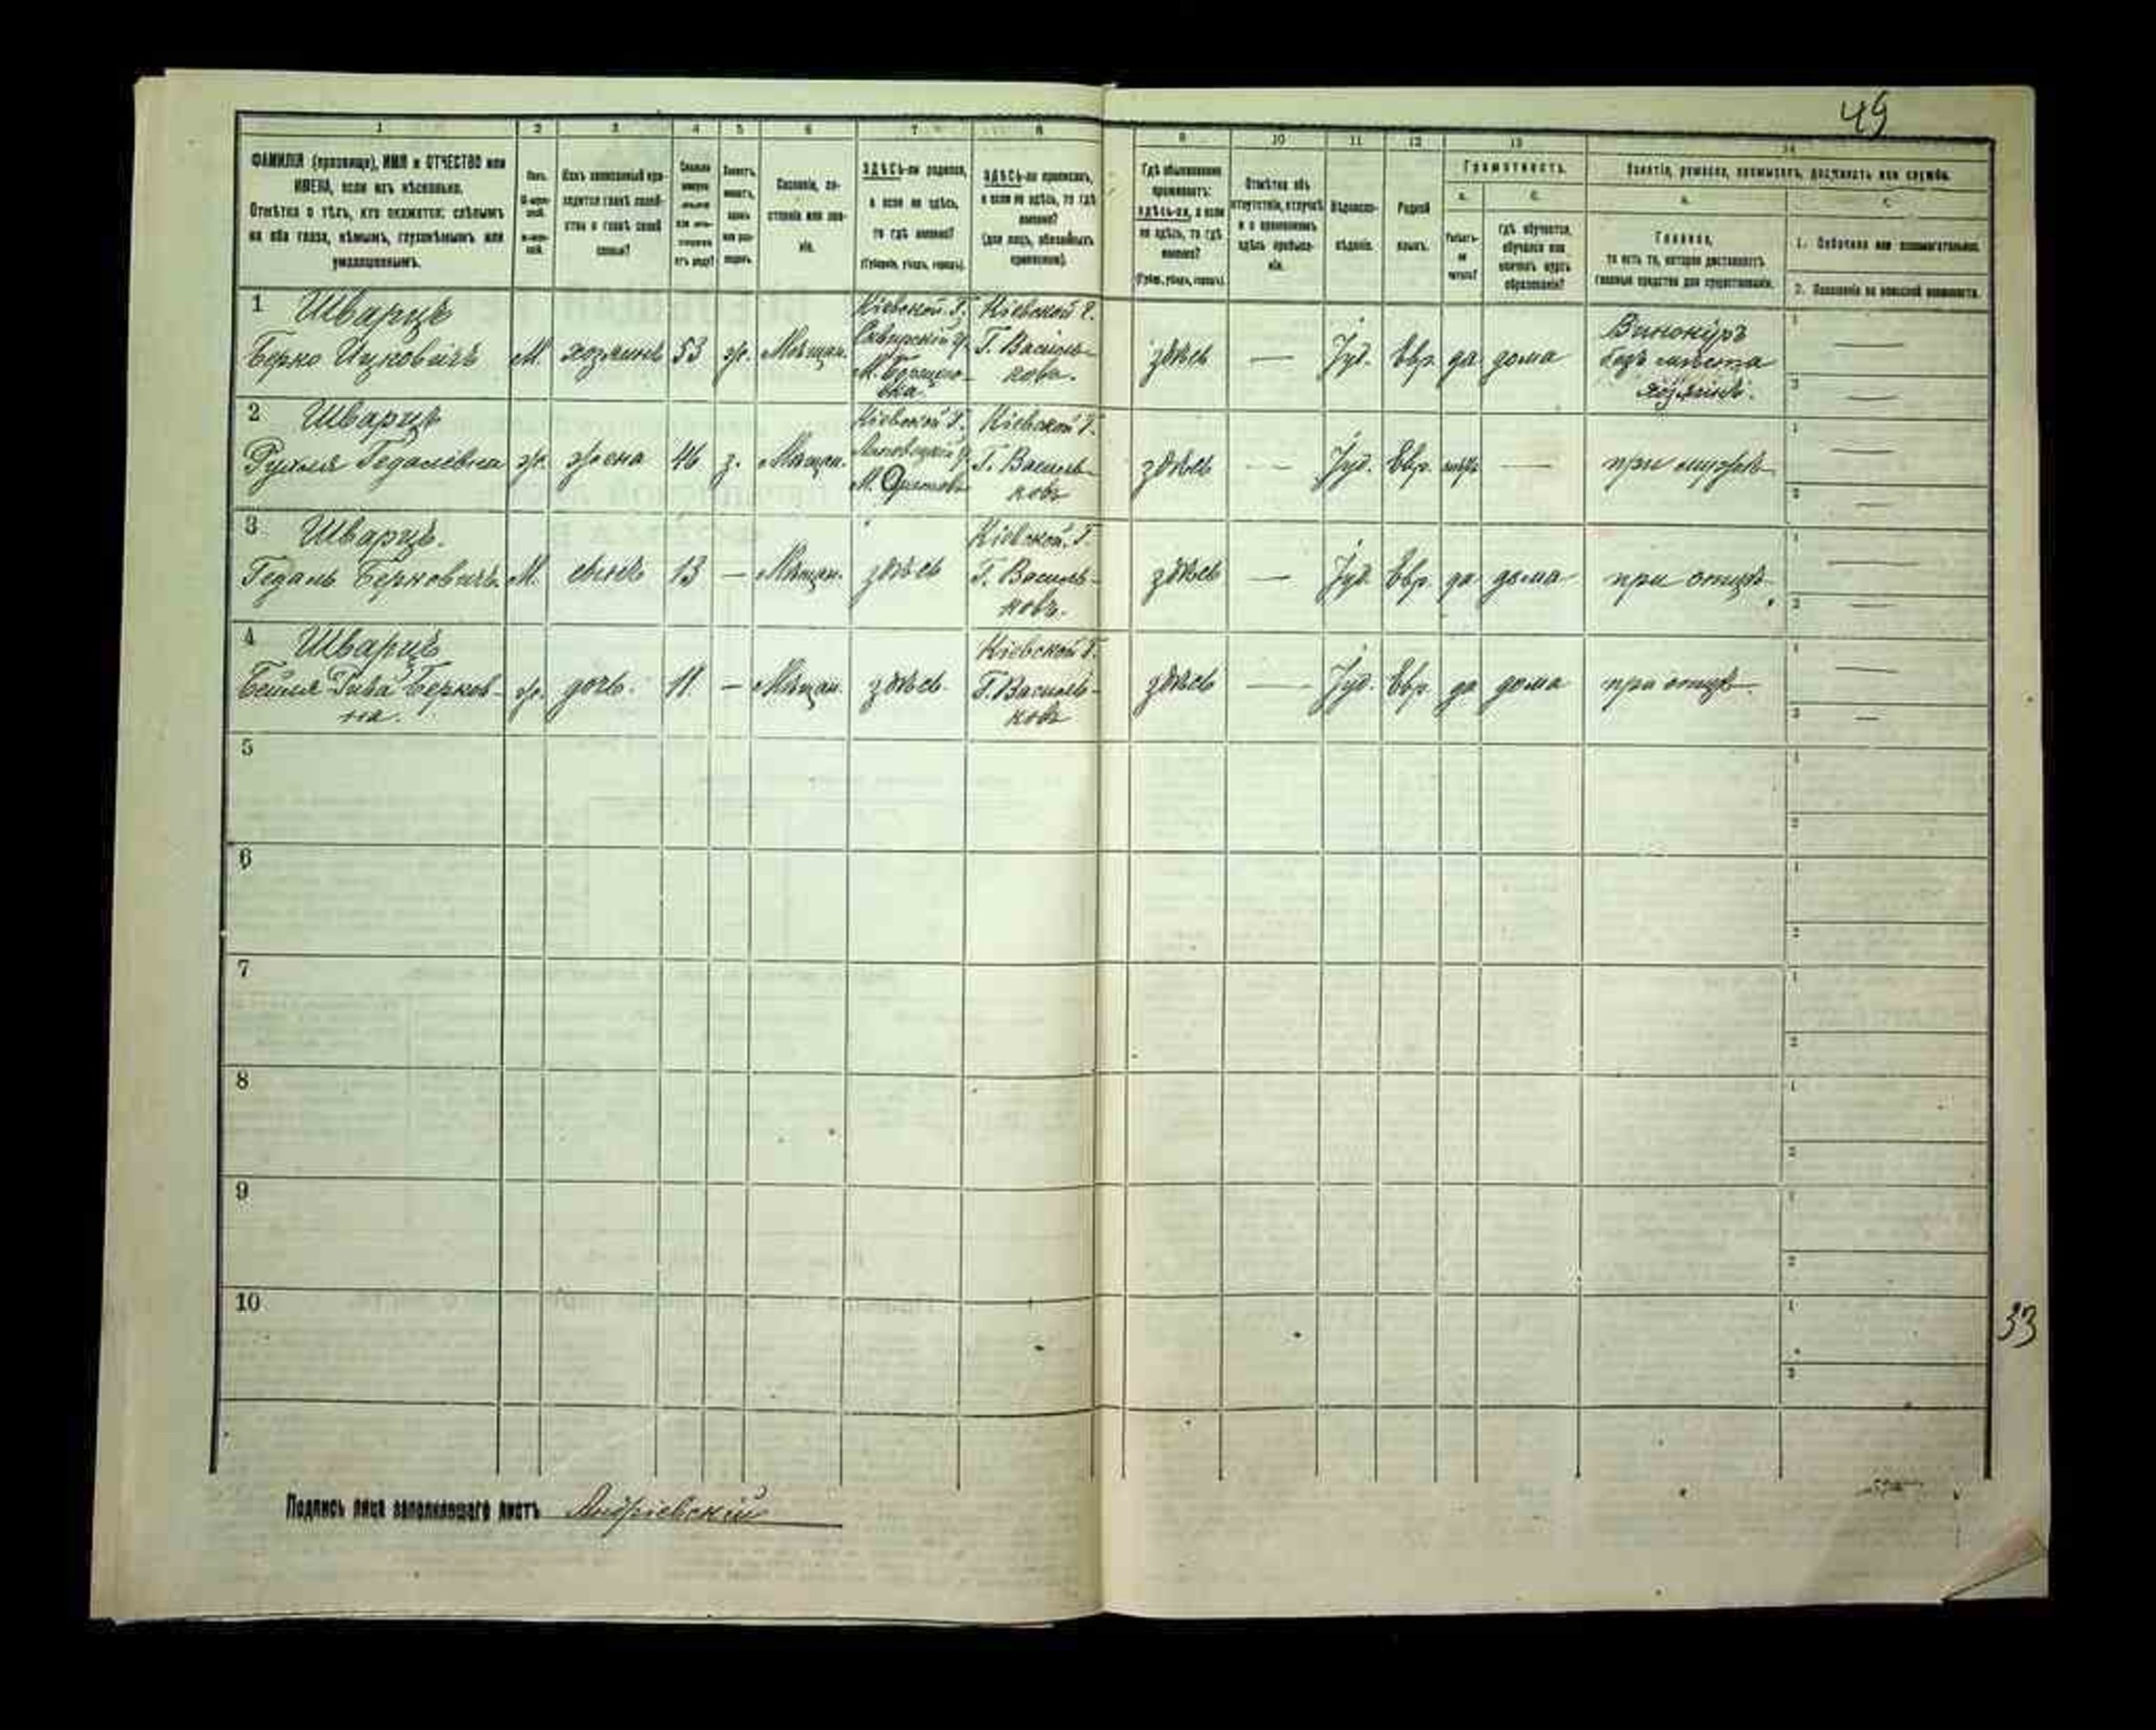 49
1 2 3 4 5 6 7 8 9 10 11 12 13 14
ФАМИЛІЯ (прозвище), ИМЯ и ОТЧЕСТВО или
ИМЕНА, если ихъ нѣсколько.
Отмѣтка о тѣхъ, кто окажется: слѣпымъ
на оба глаза, нѣмымъ, глухонѣмымъ или
умалишеннымъ.
Полъ.
Какъ записанный при-
ходится главѣ хозяй-
ства и главѣ своей
семьи?
Сословіе, со-
стояніе или зва-
ніе.
ЗДѢСЬ-ли родился,
а если не здѣсь,
то гдѣ именно?
(Губернія, уѣздъ, городъ).
ЗДѢСЬ-ли приписанъ,
а если не здѣсь, то гдѣ
именно?
(для лицъ, обязанныхъ
припиской).
Гдѣ обыкновенно
проживаетъ:
здѣсь-ли, а если
не здѣсь, то гдѣ
именно?
(Губ., уѣздъ, городъ).
Отмѣтка объ
отсутствіи, отлучкѣ
и о временномъ
здѣсь пребыва-
ніи.
Вѣроиспо-
вѣданіе.
Родной
языкъ.
Грамотность.
а.
Умѣетъ-
ли
читать?
б.
гдѣ обучается,
обучался или
кончилъ курсъ
образованія?
Занятіе, ремесло, промыселъ, должность или служба.
Главное,
то есть то, которое доставляетъ
главныя средства для существованія.
1. Побочное или вспомогательное.
2. Положеніе по воинской повинности.
1 Шварцъ
Берко Ицковичъ М. хозяинъ 53 ж. Мѣщан.
Кіевской Г.
Сквирскій у.
М.
Кіевской Г.
Г. Василь-
ковъ.
здѣсь — Іуд. Евр. да дома
Винокуръ
безъ мѣста
хозяинъ.
1 —
2 —
2 Шварцъ
Рухля Гедалевна ж. жена 46 з. Мѣщан.
Кіевской Г.
М.
Кіевской Г.
Г. Василь-
ковъ
здѣсь — Іуд. Евр. нѣтъ — при мужѣ
1 —
2 —
3 Шварцъ.
Гедаль Берковичъ М. сынъ 13 — Мѣщан. здѣсь
Кіевской Г.
Г. Василь-
ковъ.
здѣсь — Іуд. Евр. да дома при отцѣ
1 —
2 —
4 Шварцъ
Бейля Рива Берков-
на. ж. дочь. 11 — Мѣщан. здѣсь
Кіевской Г.
Г. Василь-
ковъ
здѣсь — Іуд. Евр. да дома при отцѣ
1 —
2 —
5
1
2
6
1
2
7
1
2
8
1
2
9
1
2
10
1
2
33
Подпись лица заполнявшаго листъ Андріевскій